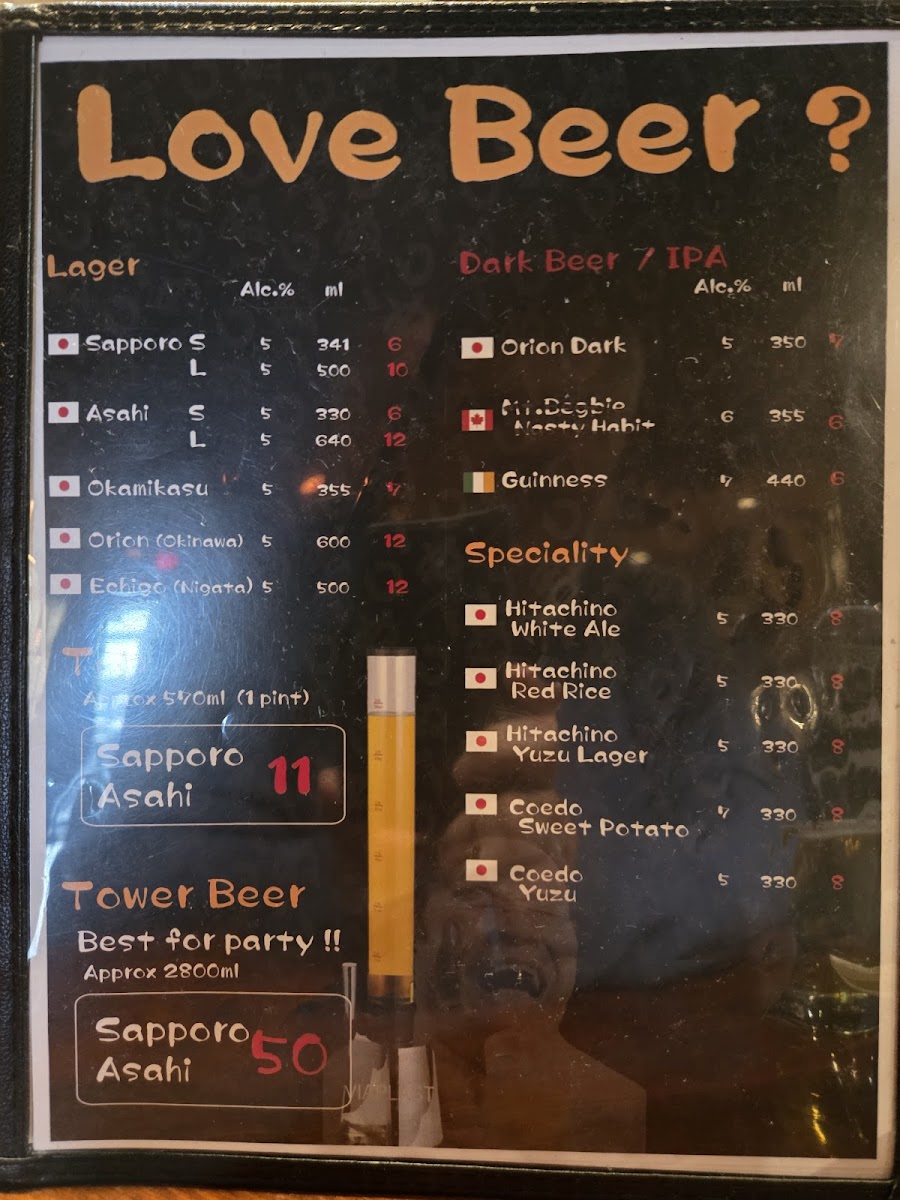 Love Beer ?
Lager
Alc.% ml
Sapporo S 5 341 6
L 5 500 10
Asahi S 5 330 6
L 5 640 12
Okamikasu 5 355 7
Orion (Okinawa) 5 600 12
Echigo (Nigata) 5 500 12
Approx 570ml (1 pint)
Sapporo
Asahi
11
Tower Beer
Best for party !!
Approx 2800ml
Sapporo
Asahi
50
Dark Beer / IPA
Alc.% ml
Orion Dark 5 350 7
Mt.Begbie
Nasty Habit 6 355 6
Guinness 7 440 6
Speciality
Hitachino
White Ale 5 330 8
Hitachino
Red Rice 5 330 8
Hitachino
Yuzu Lager 5 330 8
Coedo
Sweet Potato 7 330 8
Coedo
Yuzu 5 330 8